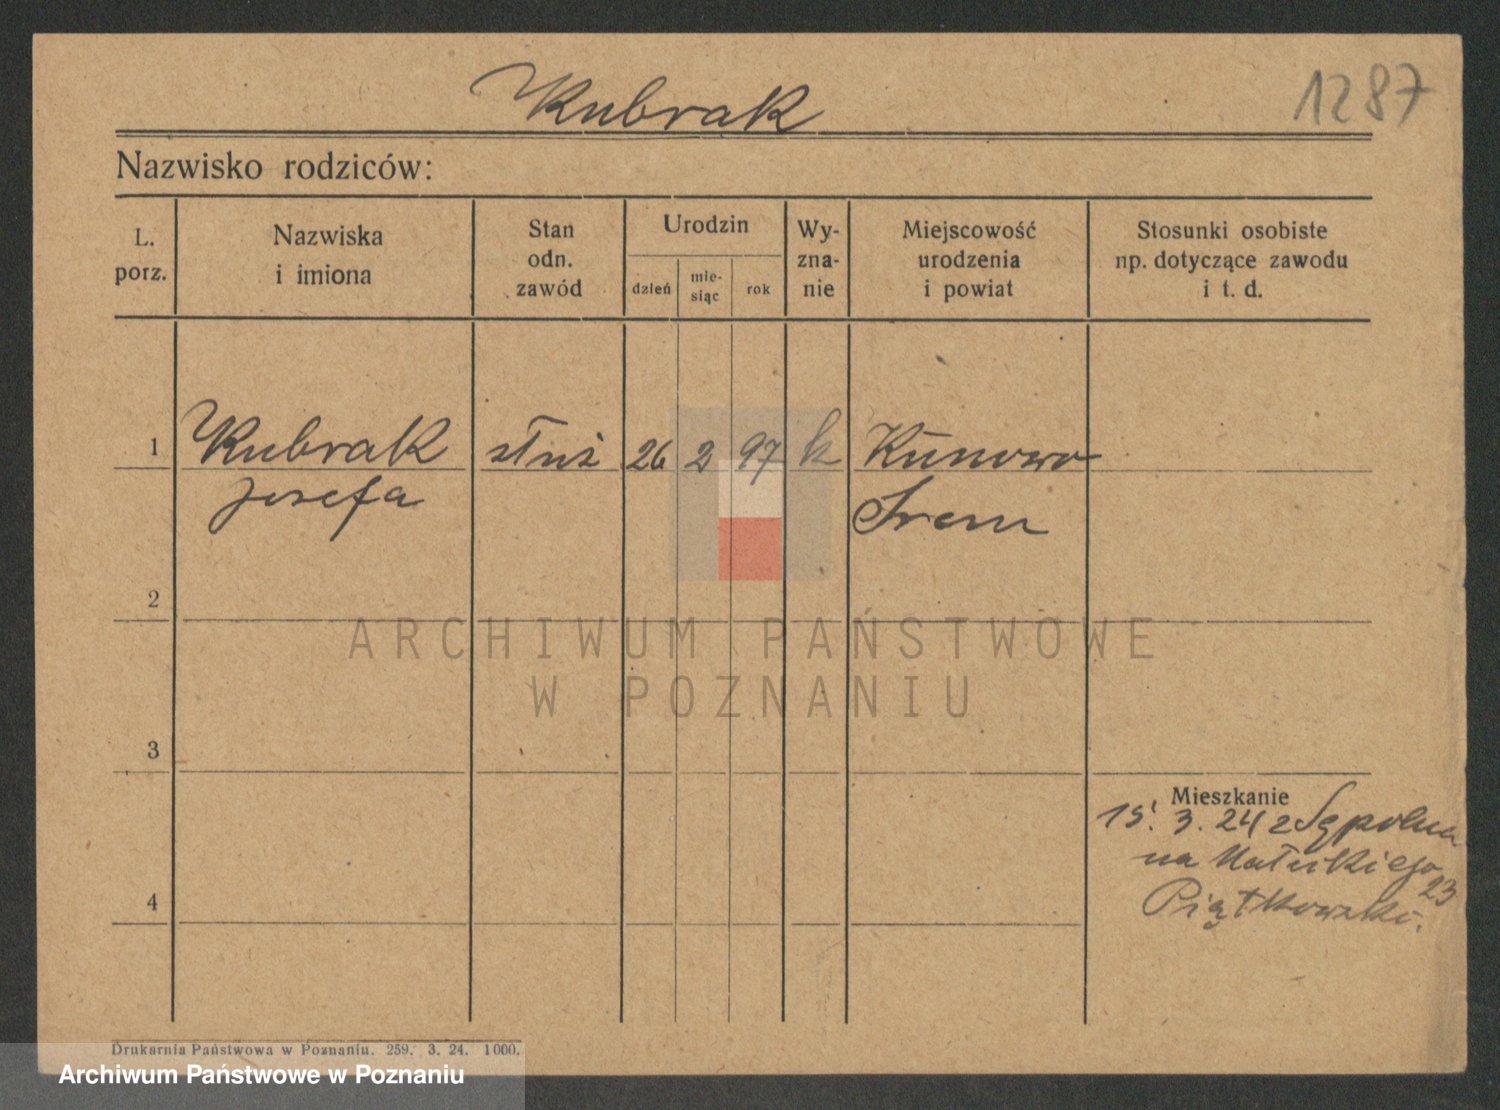 Kubrak
1287
Nazwisko rodziców:
L. porz.
Nazwiska i imiona
Stan odn. zawód
Urodzin
dzień
mie-siąc
rok
Wy-zna-nie
Miejscowość urodzenia i powiat
Stosunki osobiste np. dotyczące zawodu i t. d.
1 Kubrak służ 26 2 97 k Kunowo
Josefa Śrem
2
ARCHIWUM PAŃSTWOWE
W POZNANIU
3
Mieszkanie
15. 3. 24 z Sępolna
na
23
Piątkowski.
4
Drukarnia Państwowa w Poznaniu. 259. 3. 24. 1000.
Archiwum Państwowe w Poznaniu